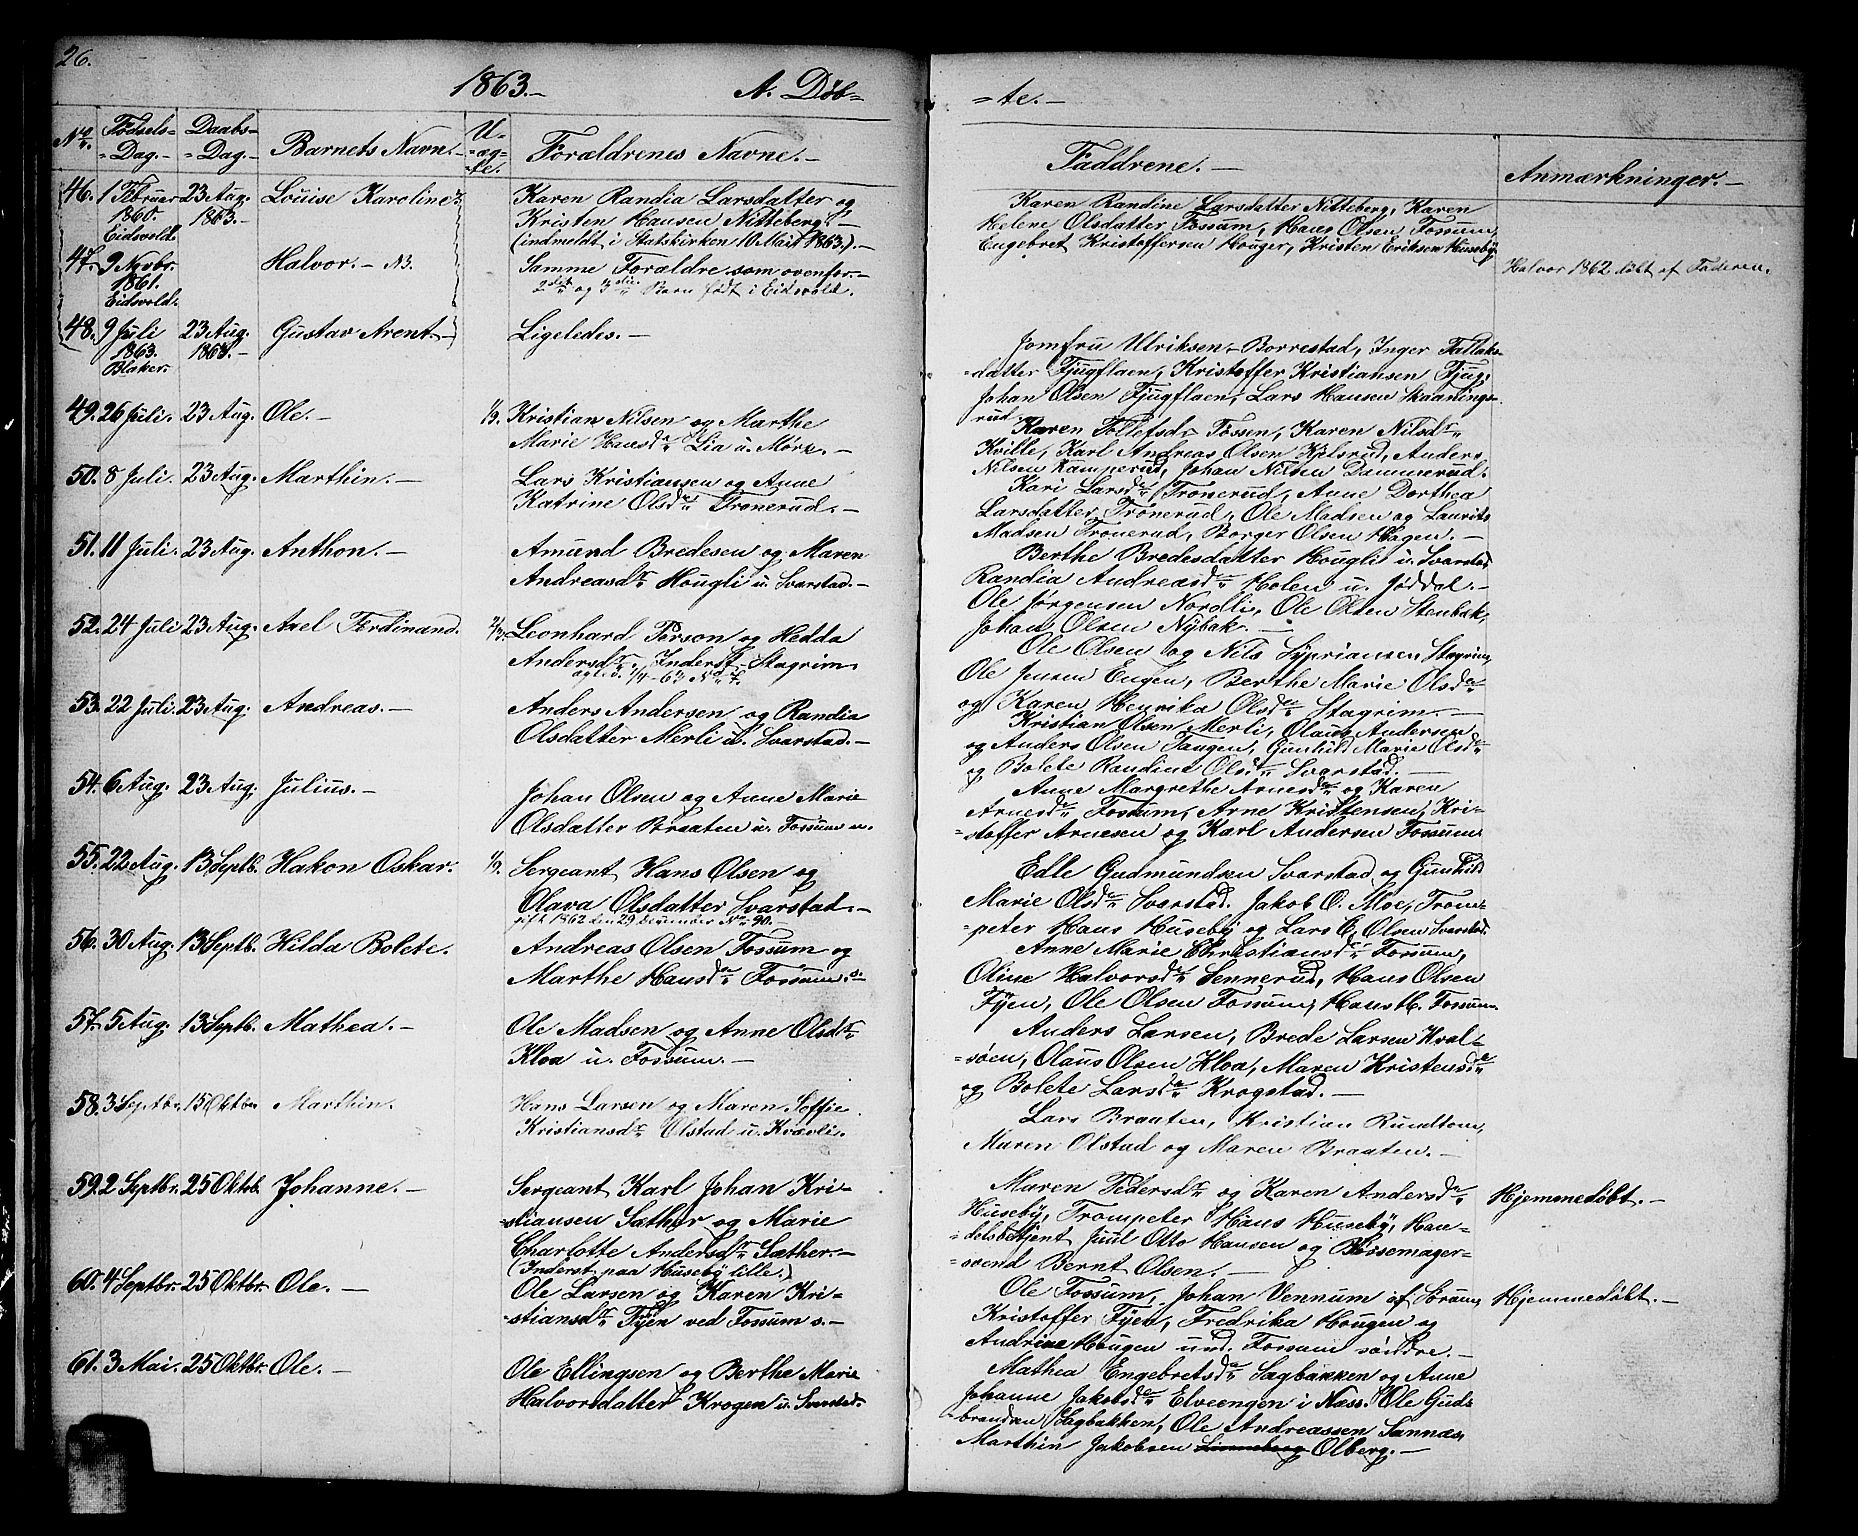 26.
1863.-
A. Døb=
=te.-
No.
Fødsels=
=Dag.-
Daabs=
=Dag.-
Barnets Navn.-
U=
=æg=
=te.
Forældrenes Navne.-
Faddrene.-
Anmærkninger.-
46. 1 Februar 1860. Eidsvold.
23 Aug. 1863.-
Louise Karoline
Karen Randia Larsdatter og
Kristen Hansen Nitteberg.-
(indmeldt i Statskirken 10 Mai 1863).-
Karen Randine Larsdatter Nitteberg, Karen
Helene Olsdatter Fossum, Hans Olsen Fossum,
Engebret Kristoffersen Houger, Kristen Eriksen Huseby
47. 9 Novbr. 1861. Eidsvold.
Halvor.-
Samme Forældre som ovenfor.-
2det og 3die Barn født i Eidsvold.
Halvor 1862 døbt af Faderen.
48. 9 Juli 1863. Blaker.
23 Aug. 1863.-
Gustav Arent.-
Ligeledes.-
Jomfru Ulriksen-Borrestad, Inger Tallaks=
=datter Fjugflaen, Kristoffer Kristiansen Fjug,
Johan Olsen Fjugflaen, Lars Hansen Skaanings=
rud.
49. 26 Juli. 23 Aug. Ole.-
Kristian Nilsen og Marthe
Marie Hansdr Lia u. Mørk.-
Karen Tollefsdr Fossen, Karen Nilsdr
Kville, Karl Andreas Olsen Kjelsrud, Anders
Nilsen Kamperud, Johan Nilsen Dammerud.
50. 8 Juli. 23 Aug. Marthin.-
Lars Kristiansen og Anne
Katrine Olsdr Tronerud.-
Kari Larsdr Tronerud, Anne Dorthea
Larsdatter Tronerud, Ole Madsen og Laurits
Madsen Tronerud, Borger Olsen Hagen.-
51. 11 Juli. 23 Aug. Anthon.-
Amund Bredesen og Maren
Andreasdr Hougli u. Svarstad.-
Berthe Bredesdatter Hougli u. Svarstad
Randia Andreasdr Holen u. Jøddal.-
Ole Jørgensen Nordli, Ole Olsen Stenbak,
Johan Olsen Nybak.-
52. 24 Juli 23 Aug. Axel Ferdinand.
Leonhard Person og Hedda
Andersdr, Inderst Stagrim.
Ole Olsen og Nils Sypriansen Stagrim,
Ole Jensen Engen, Berthe Marie Olsdr
og Karen Henrika Olsdr Stagrim.-
53. 22 Juli. 23 Aug. Andreas.-
Anders Andersen og Randia
Olsdatter Merli u. Svarstad.-
Kristian Olsen Merli, Olaus Andersen
og Anders Olsen Taugen, Gunhild Marie Olsdr
og Bolete Randine Olsdr Svarstad.-
54. 6 Aug. 23 Aug. Julius.-
Johan Olsen og Anne Marie
Olsdatter Braaten u. Fossum n.
Anne Margrethe Arnesdr og Karen
Arnesdr Fossum, Arne Kristensen, Kri=
=stoffer Arnesen og Karl Andersen Fossum.
55. 22 Aug. 13 Septb. Hakon Oskar.
Sergeant Hans Olsen og
Olava Olsdatter Svarstad.-
gift 1862 den 29 December No 90.
Edle Gudmundsen Svarstad og Gunhild
Marie Olsdr Svarstad. Jakob O. Moe, Trom=
=peter Hans Huseby og Lars E. Olsen Svarstad.
56. 30 Aug. 13 Septb. Hilda Bolete.
Andreas Olsen Fossum og
Marthe Hansdr Fossum s.-
Anne Marie Christiansdr Fossum,
Oline Halvorsdr Sennerud, Hans Olsen
Fyen, Ole Olsen Fossum, Hans H. Fossum.
57. 5 Aug. 13 Septb. Mathea.-
Ole Madsen og Anne Olsdr
Kloa u. Fossum.-
Anders Larsen, Brede Larsen Kval=
=søen, Olaus Olsen Kloa, Maren Kristensdr
og Bolete Larsdr Krogstad.-
58. 3 Septbr. 15 Oktbr Marthin.
Hans Larsen og Maren Soffie
Kristiansdr Olstad u. Kvævli.
Lars Braaten, Kristian Rundtom,
Maren Olstad og Maren Braaten.-
59. 2 Septbr. 25 Oktb. Johanne.-
Sergeant Karl Johan Kri=
=stiansen Sæther og Marie
Charlotte Andersdr Sæther.-
(Inderst paa Huseby lille.)
Maren Pedersdr og Karen Andersdr
Huseby, Trompeter Hans Huseby, Han=
=delsbetjent Juul Otto Hansen og Bøssemager=
=svend Bernt Olsen.-
Hjemmedøbt.-
60. 4 Septbr. 25 Oktbr. Ole.-
Ole Larsen og Karen Kri=
=stiansdr Fyen ved Fossum s.-
Ole Fossum, Johan Vennum af Sørum,
Kristoffer Fyen, Fredrika Hougen og
Andrine Hougen und. Fossum søndre.-
Hjemmedøbt.-
61. 3 Mai. 25 Oktbr. Ole.-
Ole Ellingsen og Berthe Marie
Halvorsdatter Krogen u. Svarstad.
Mathea Engebretsdr Sagbakken og Anne
Johanne Jakobsdr Elveengen i Næss. Ole Gud=
=brandsen Sagbakken, Ole Andreassen Sannæs,
Marthin Jakobsen Olberg.-